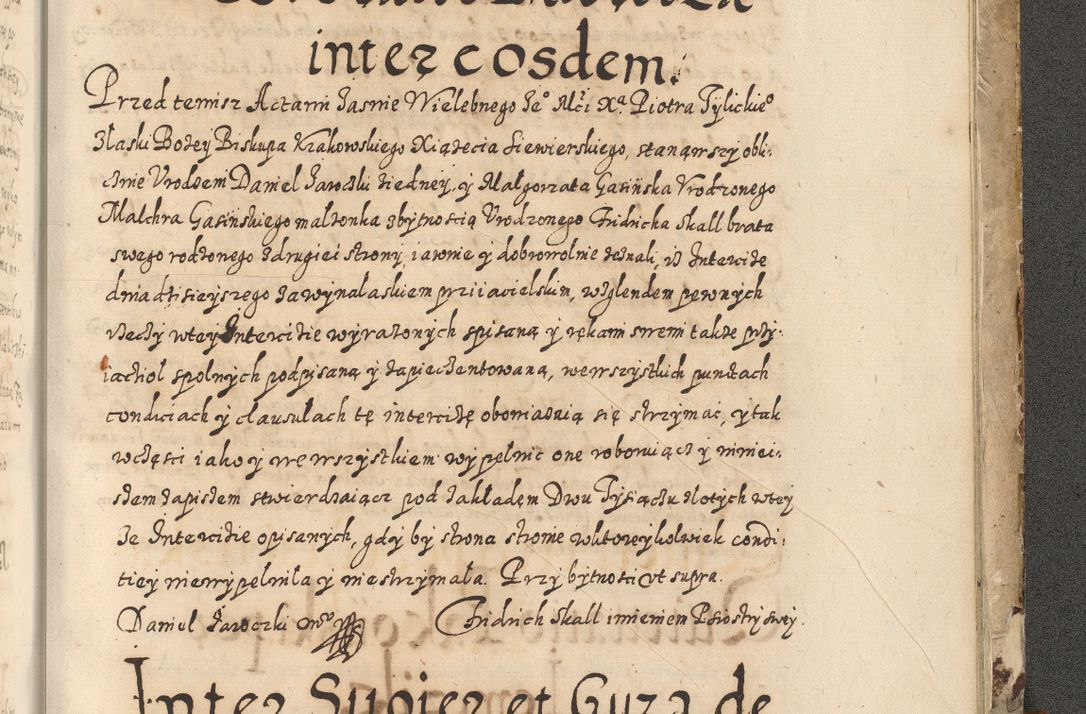 inter eosdem.
Przed temisz Actami Jasnie Wielebnego Je° Mći X^a. Piotra Tylickie°
Złaski Bożey Biskupa Krakowskiego Xiążecia Siewierskiego, stanąwszy obli-
cznie Vrodzem Daniel Jaroczki ziedney, y Małgorzata Gasińska Vrodzonego
Malchra Gasińskiego małżonka zbytnoscią Vrodzonego Fridricha Skall brata
swego rodzonego zdrugiei strony, iawnie y dobrowolnie zeznali, iż Intercize
dnia dzisieyszego zawynalaskiem prziiacielskim, wzglendem pewnych
rzeczy wtey Intercizie wyrażonych spisaną y rękami swemi także przy-
iaciol spolnych podpisaną y zapieczentowaną, wewszystkich punctach
condiciach y clausulach tę intercizę obowiazuią się strzymac, y tak
wczęsci iako y wewszystkiem wypełnic one roboruiącz y niniei-
szem zapisem stwierdzaiącz pod zakładem Dwu Tysiączu złotych wtey
Je Intercizie opisanych, gdy by strona stronie wktoreykolwiek condi-
ticy niewypełniła y niestrzymała. Przy bytnosci vt supra.
Daniel Jaroczki Fridrich Skall imieniem P siostry swey.
Inter Suoier et Guza de